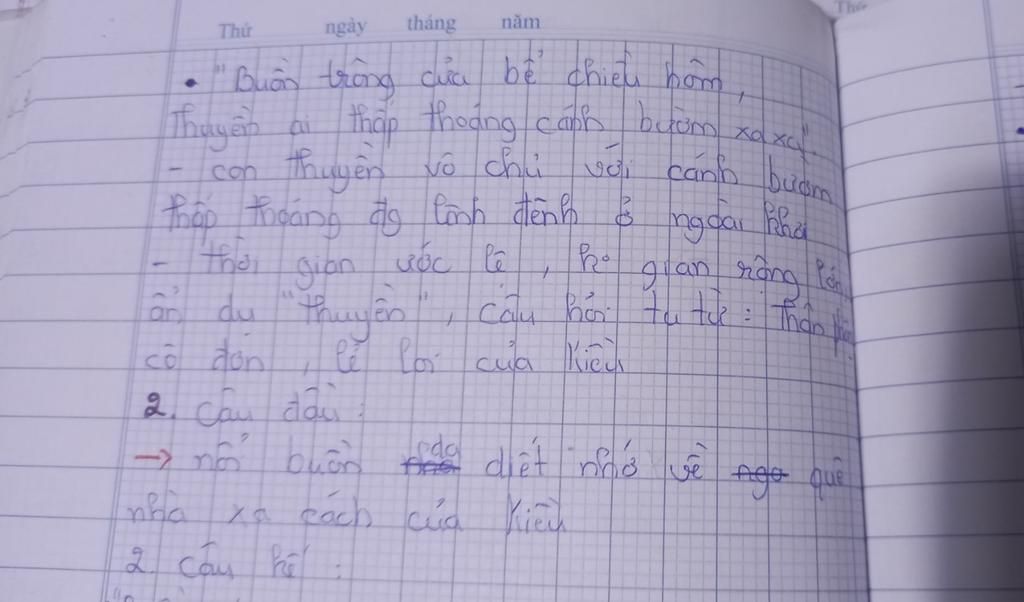 Thứ ngày tháng năm
• "Buồn trông cửa bể chiều hôm,
Thuyền ai thấp thoáng cánh buồm xa xa".
- con thuyền vô chủ với cánh buồm
thấp thoáng đg lênh đênh ở ngoài khơi
- thời gian ước lệ, ko gian rộng lớn
ẩn dụ "thuyền", câu hỏi tu từ: thân
cô đơn, lẻ loi của Kiều
2. câu đầu:
→ nỗi buồn da diết nhớ về quê
nhà xa cách của Kiều
2 câu kế: